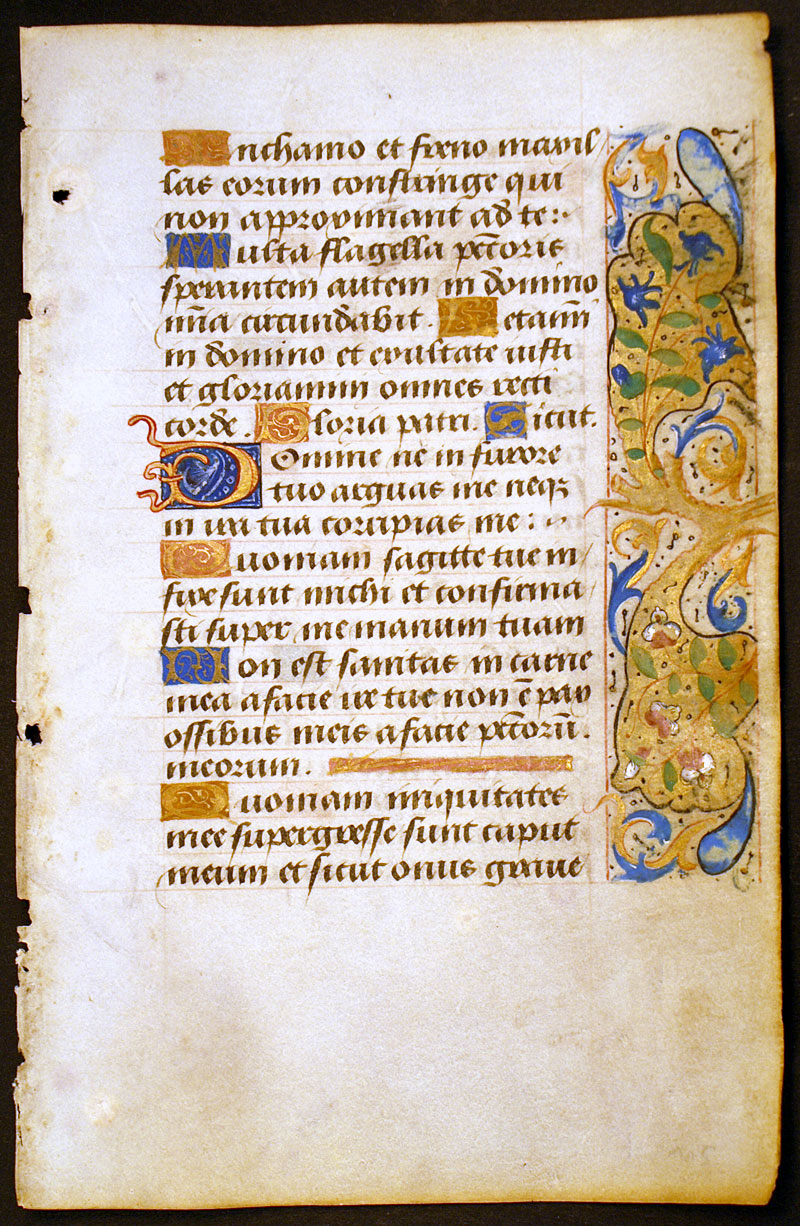 In chamo et freno maxil
las eorum constringe qui
non approximant ad te:
Multa flagella peccoris
sperantem autem in domino
mĩa circundabit. Letamĩ
in domino et exultate iusti
et gloriamini omnes recti
corde. Gloria patri. Sicut.
Domine ne in furore
tuo arguas me neqꝫ
in ira tua corripias me:
Quoniam sagitte tue in
fixe sunt michi et confirma
sti super me manum tuam
Non est sanitas in carne
mea a facie ire tue non ẽ pax
ossibus meis a facie pctorũ.
meorum.
Quoniam iniquitates
mee supergresse sunt caput
meum et sicut onus grave